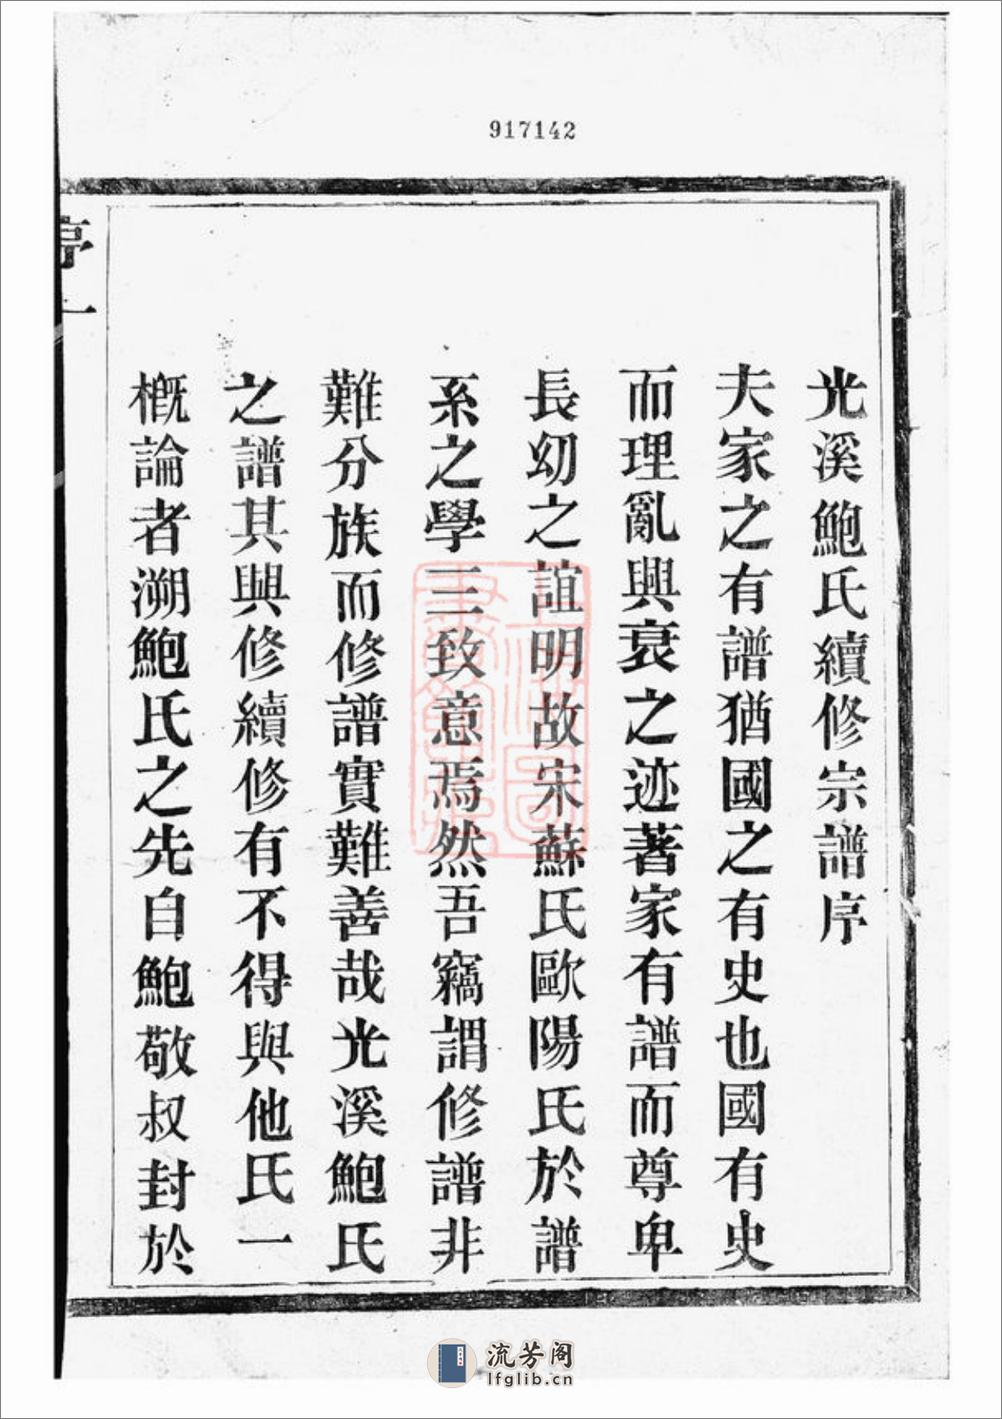 917142
光溪鮑氏續修宗譜序
夫家之有譜猶國之有史也國有史
而理亂興衰之迹著家有譜而尊卑
長幼之誼明故宋蘇氏歐陽氏於譜
系之學三致意焉然吾竊謂修譜非
難分族而修譜實難善哉光溪鮑氏
之譜其與修續修有不得與他氏一
概論者溯鮑氏之先自鮑敬叔封於
序一
上海圖書館藏
流芳阁
lfglib.cn